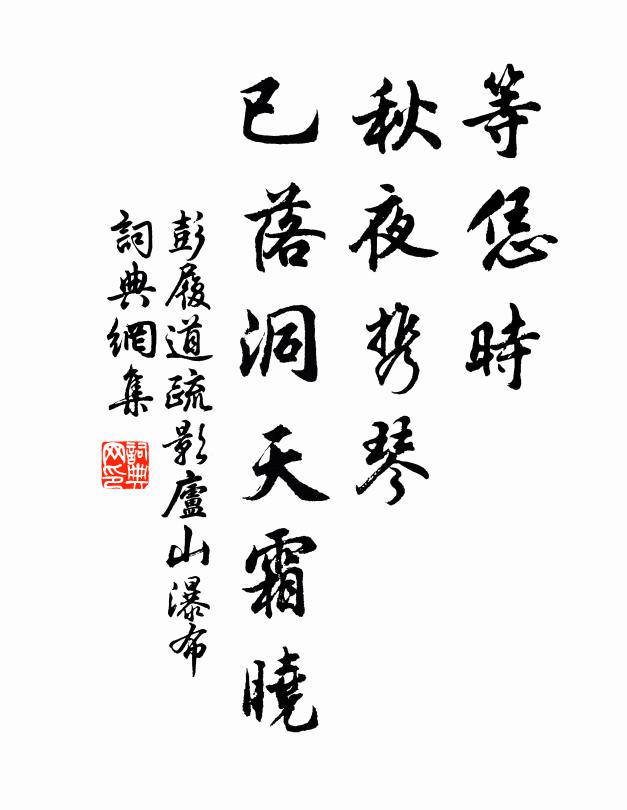 等恁時
秋夜携琴
已落洞天霜曉
彭履道疏影廬山瀑布
詞典網集
詞典
网印